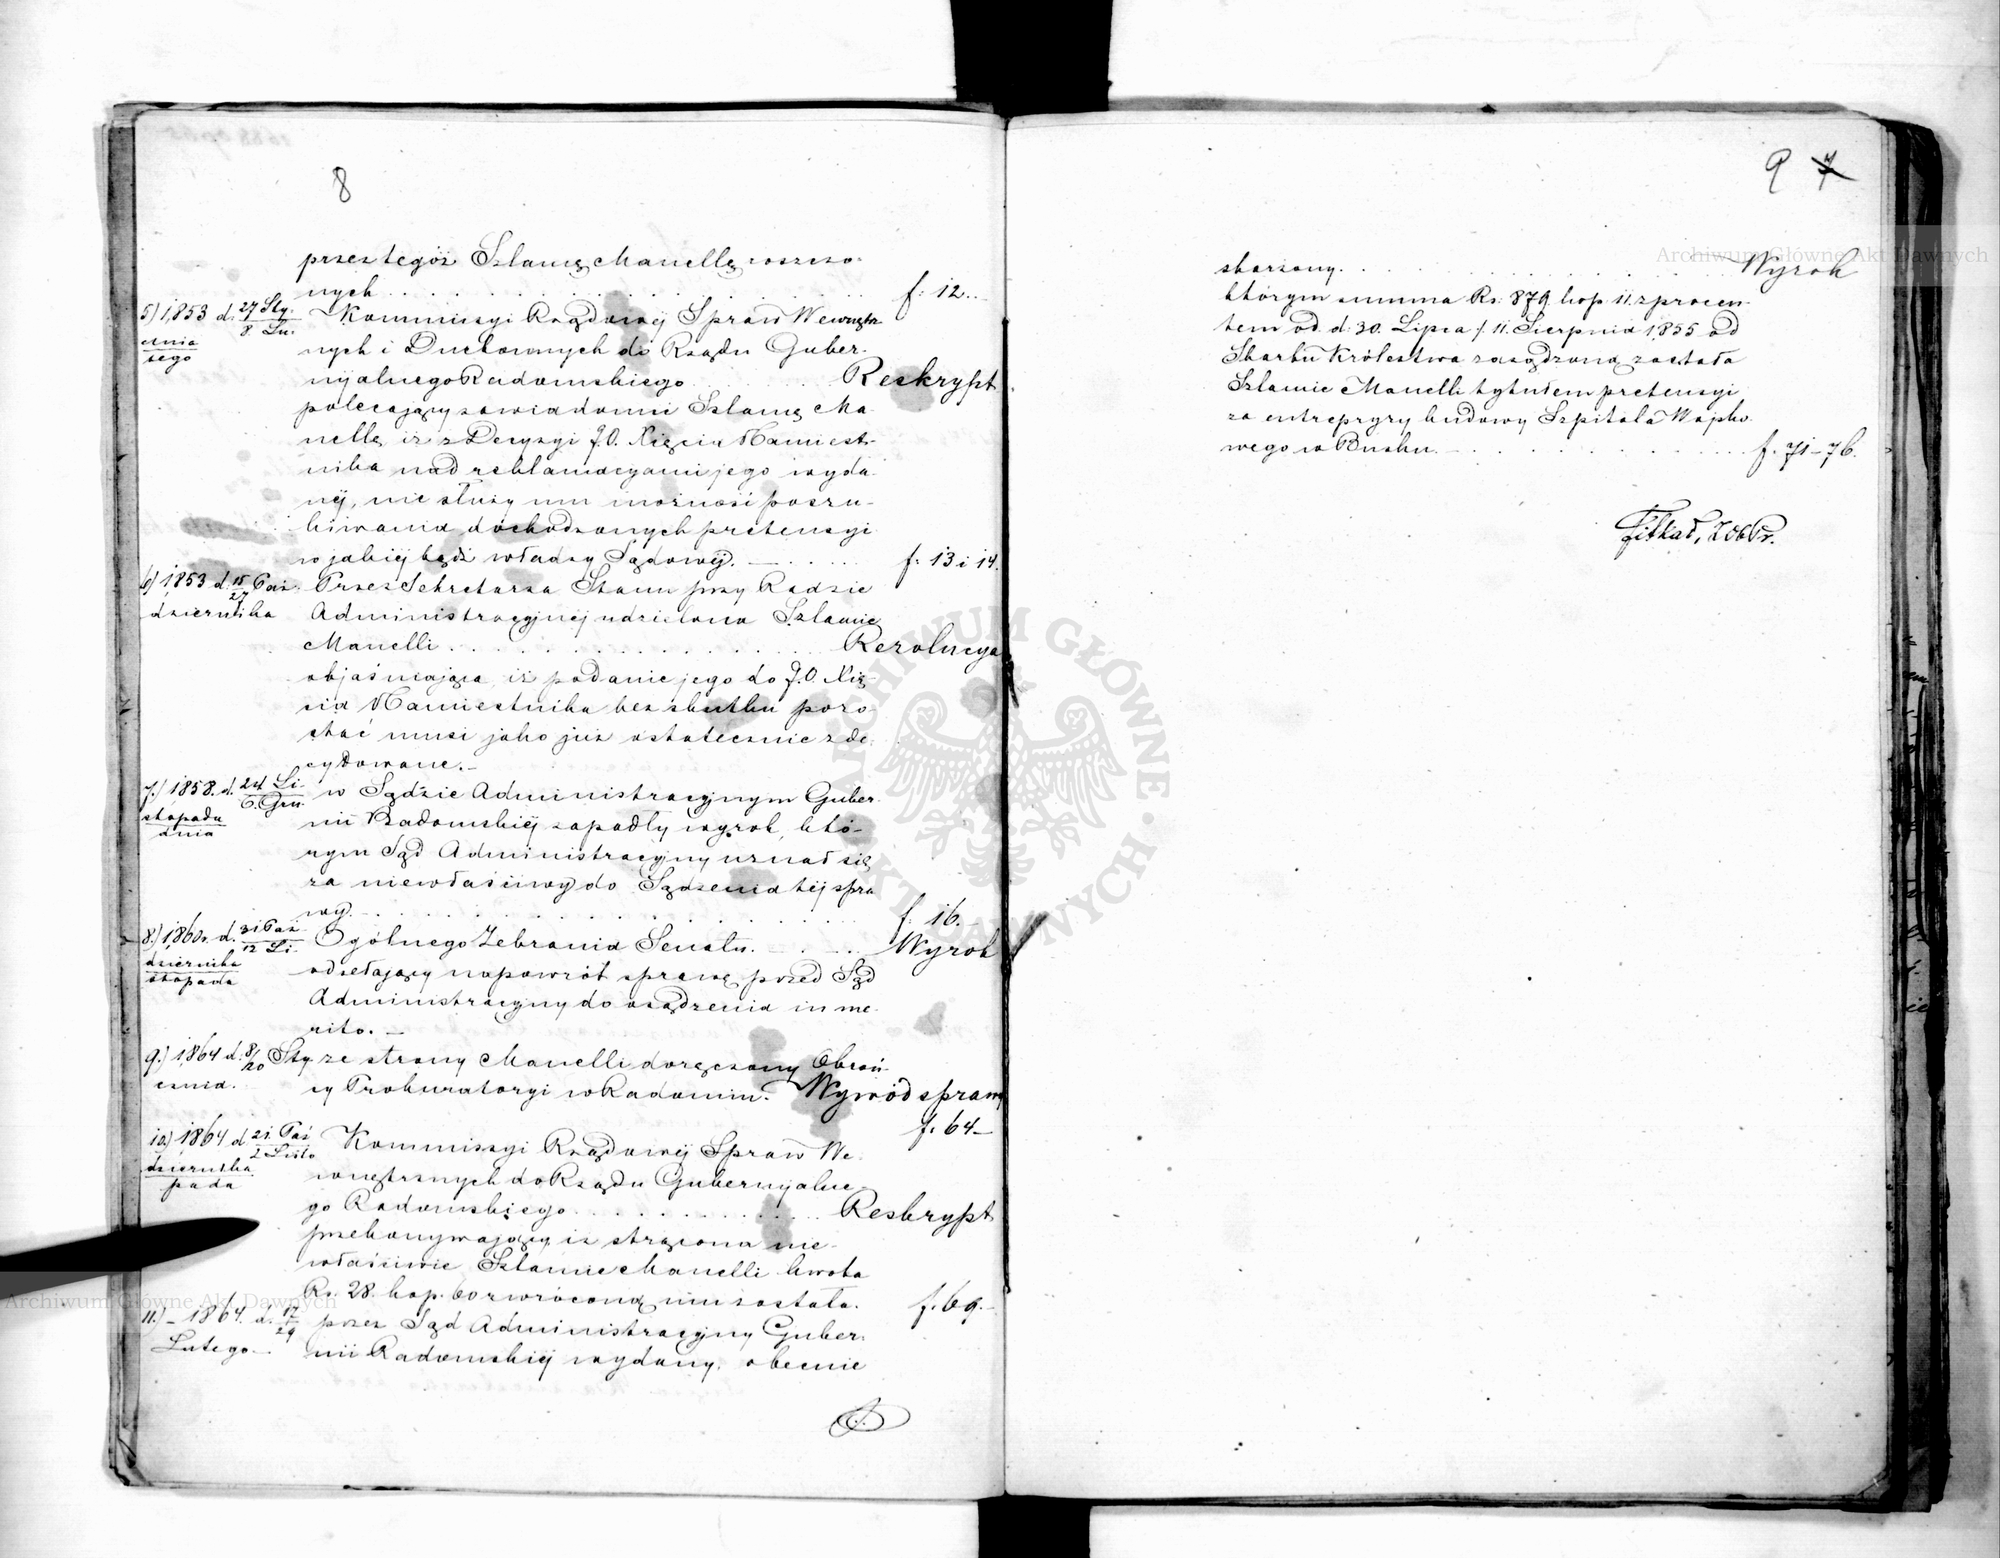 8
przez tegóż Szlamę Manellę roszczo-
nych . . . . . f. 12.
5) 1853 d. 27 Sty-
8 Lu-
cznia
tego
Kommissyi Rządowéj Spraw Wewnętrz
nych i Duchownych do Rządu Guber-
nyalnego Radomskiego . . . . Reskrypt
polecający zawiadomić Szlamę Ma-
nellę iż z Decyzyi J.O. Xięcia Namiest-
nika nad reklamacyami jego wyda-
néj, nie służy mu możność poszu-
kiwania dochodzonych pretensyi
w jakiéj bądź władzy Sądowéj. — . . . . f. 13 i 14.
6) 1853 d. 15/27 Paź-
dziernika
Przez Sekretarza Stanu przy Radzie
Administracyjnéj udzielona Szlamie
Manelli . . . . . Rezolucya
objaśniająca, iż podanie jego do J.O. Xię-
cia Namiestnika bez skutku pozo-
stać musi jako już ostatecznie zde-
cydowane. —
7.) 1858. d. 24 Li-
6. Gru-
stopada
dnia
w Sądzie Administracyjnym Guber-
nii Radomskiéj zapadły wyrok, któ-
rym Sąd Administracyjny uznał się
za niewłaściwy do Sądzenia téj spra
wy. . . . . . f. 16.
8.) 1860r. d. 31 Paź
12 Li-
dziernika
stopada
Ogólnego Zebrania Senatu. . . . . Wyrok
odsełający napowrót sprawę przed Sąd
Administracyjny do osądzenia in me-
rito. —
9.) 1864 d. 8/20 Sty-
cznia.
ze strony Manelli doręczony Obroń-
cy Prokuratoryi w Radomiu. Wywód sprawy
f. 64 —
10.) 1864 d 21 Paź
2 Listo
dziernika
pada
Kommissyi Rządowéj Spraw We-
wnętrznych do Rządu Gubernyalne-
go Radomskiego . . . . . Reskrypt
przekonywający iż strącona nie-
właściwie Szlamie Manelli kwota
Rs. 28. kop. 60 zwróconą mu została. f. 69. —
11.) — 1864. d. 17/29
Lutego —
przez Sąd Administracyjny Guber-
nii Radomskiéj wydany, obecnie
9 7
skarżony. . . . . . Wyrok
którym summa Rs. 879 kop. 11. z procen-
tem od d. 30. Lipca / 11. Sierpnia 1855 od
Skarbu Królestwa zasądzoną została
Szlamie Manelli tytułem pretensyi
za entrepryzy budowy Szpitala Wojsko-
wego w Busku. — . . . . f. 71–76.
Archiwum Główne Akt Dawnych
Archiwum Główne Akt Dawnych
ARCHIWUM GŁÓWNE AKT DAWNYCH